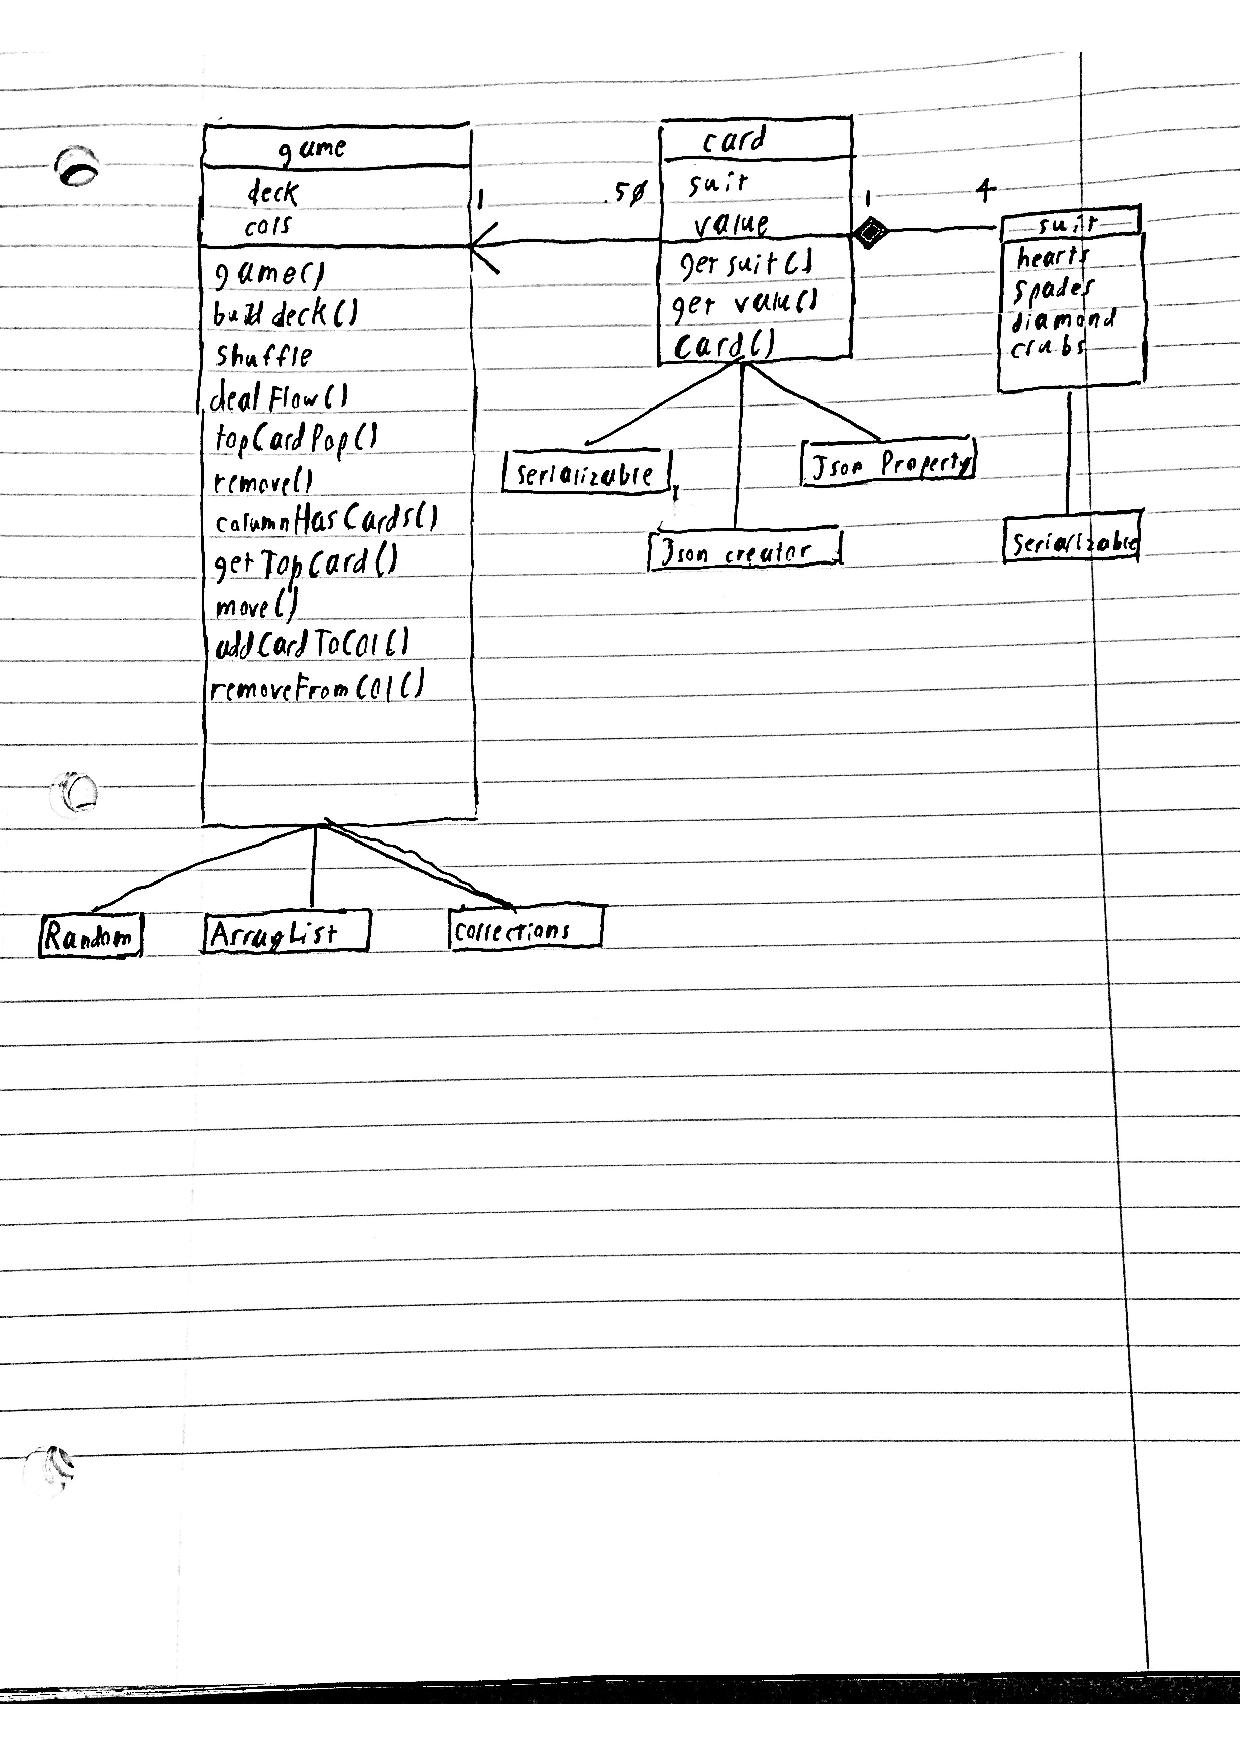 game
deck
cols
game()
build deck()
shuffle
deal Flow()
topCardPop()
remove()
columnHasCards()
getTopCard()
move()
addCardToCol()
removeFromCol()
1
.50
card
suit
value
getsuit()
get value()
Card()
1
4
suit
hearts
spades
diamond
clubs
Serializable
Json creator
Json Property
Serializable
Random
ArrayList
collections